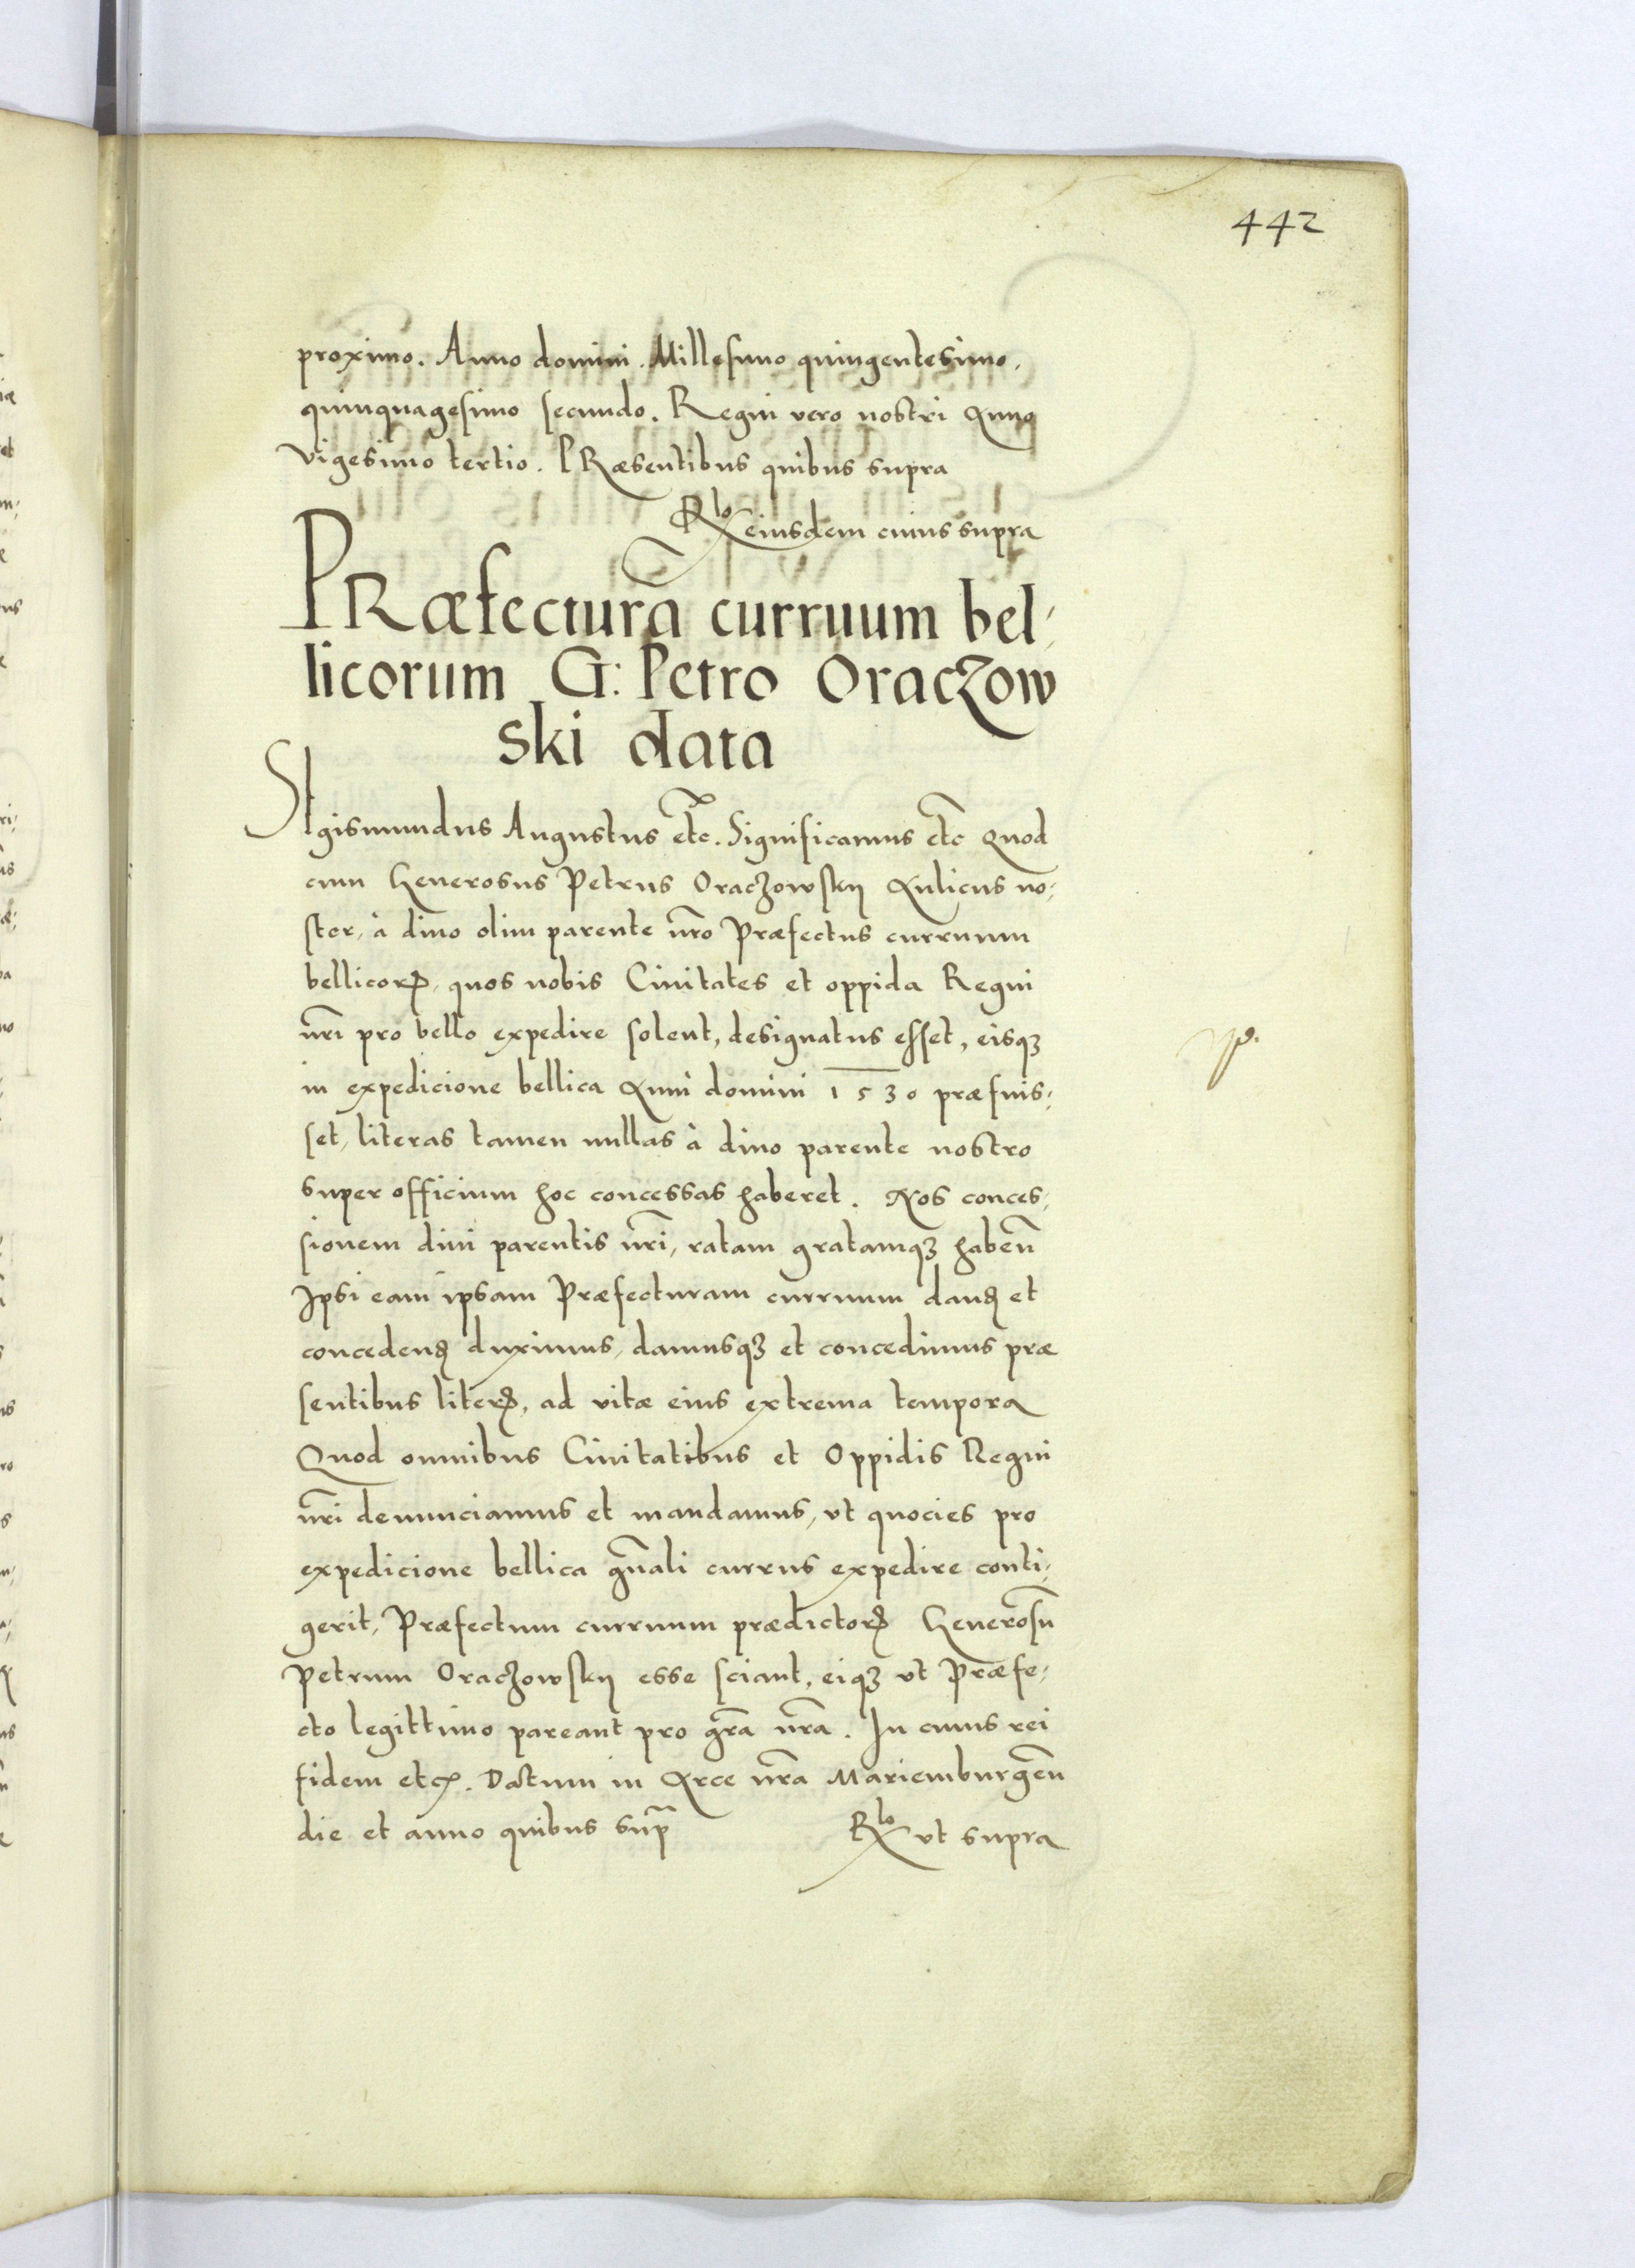 442
proximo. Anno domini. Millesimo quingentesimo.
quinquagesimo secundo. Regni vero nostri Anno
vigesimo tertio. PRæsentibus quibus supra
Rlo eiusdem cuius supra
PRæfectura curruum bel,
licorum G: Petro Oraczow
ski data
SIgismundus Augustus etc. Significamus etc Quod
cum Generosus Petrus Oraczowskij Aulicus no,
ster, à diuo olim parente nro Præfectus curruum
bellicorꝝ, quos nobis Ciuitates et oppida Regni
nri pro bello expedire solent, designatus esset, eisqꝫ
in expedicione bellica Anni domini 1530 præfuis,
set, literas tamen nullas à diuo parente nostro
super officium hoc concessas haberet. Nos conces,
sionem diui parentis nri, ratam gratamqꝫ habeñ
Ipsi eam ipsam Præfecturam curruum danđ et
concedenđ duximus, damusqꝫ et concedimus præ
sentibus literꝭ, ad vitæ eius extrema tempora
Quod omnibus Ciuitatibus et Oppidis Regni
nri denunciamus et mandamus, vt quocies pro
expedicione bellica gñali currus expedire conti,
gerit, Præfectum curruum prædictorꝝ Generosũ
Petrum Oraczowskij esse sciant, eiqꝫ vt Præfe,
cto legittimo pareant pro gra nra. In cuius rei
fidem etcꝭ. Datum in Arce nra Mariemburgeñ
die et anno quibus sup̃
Rlo vt supra